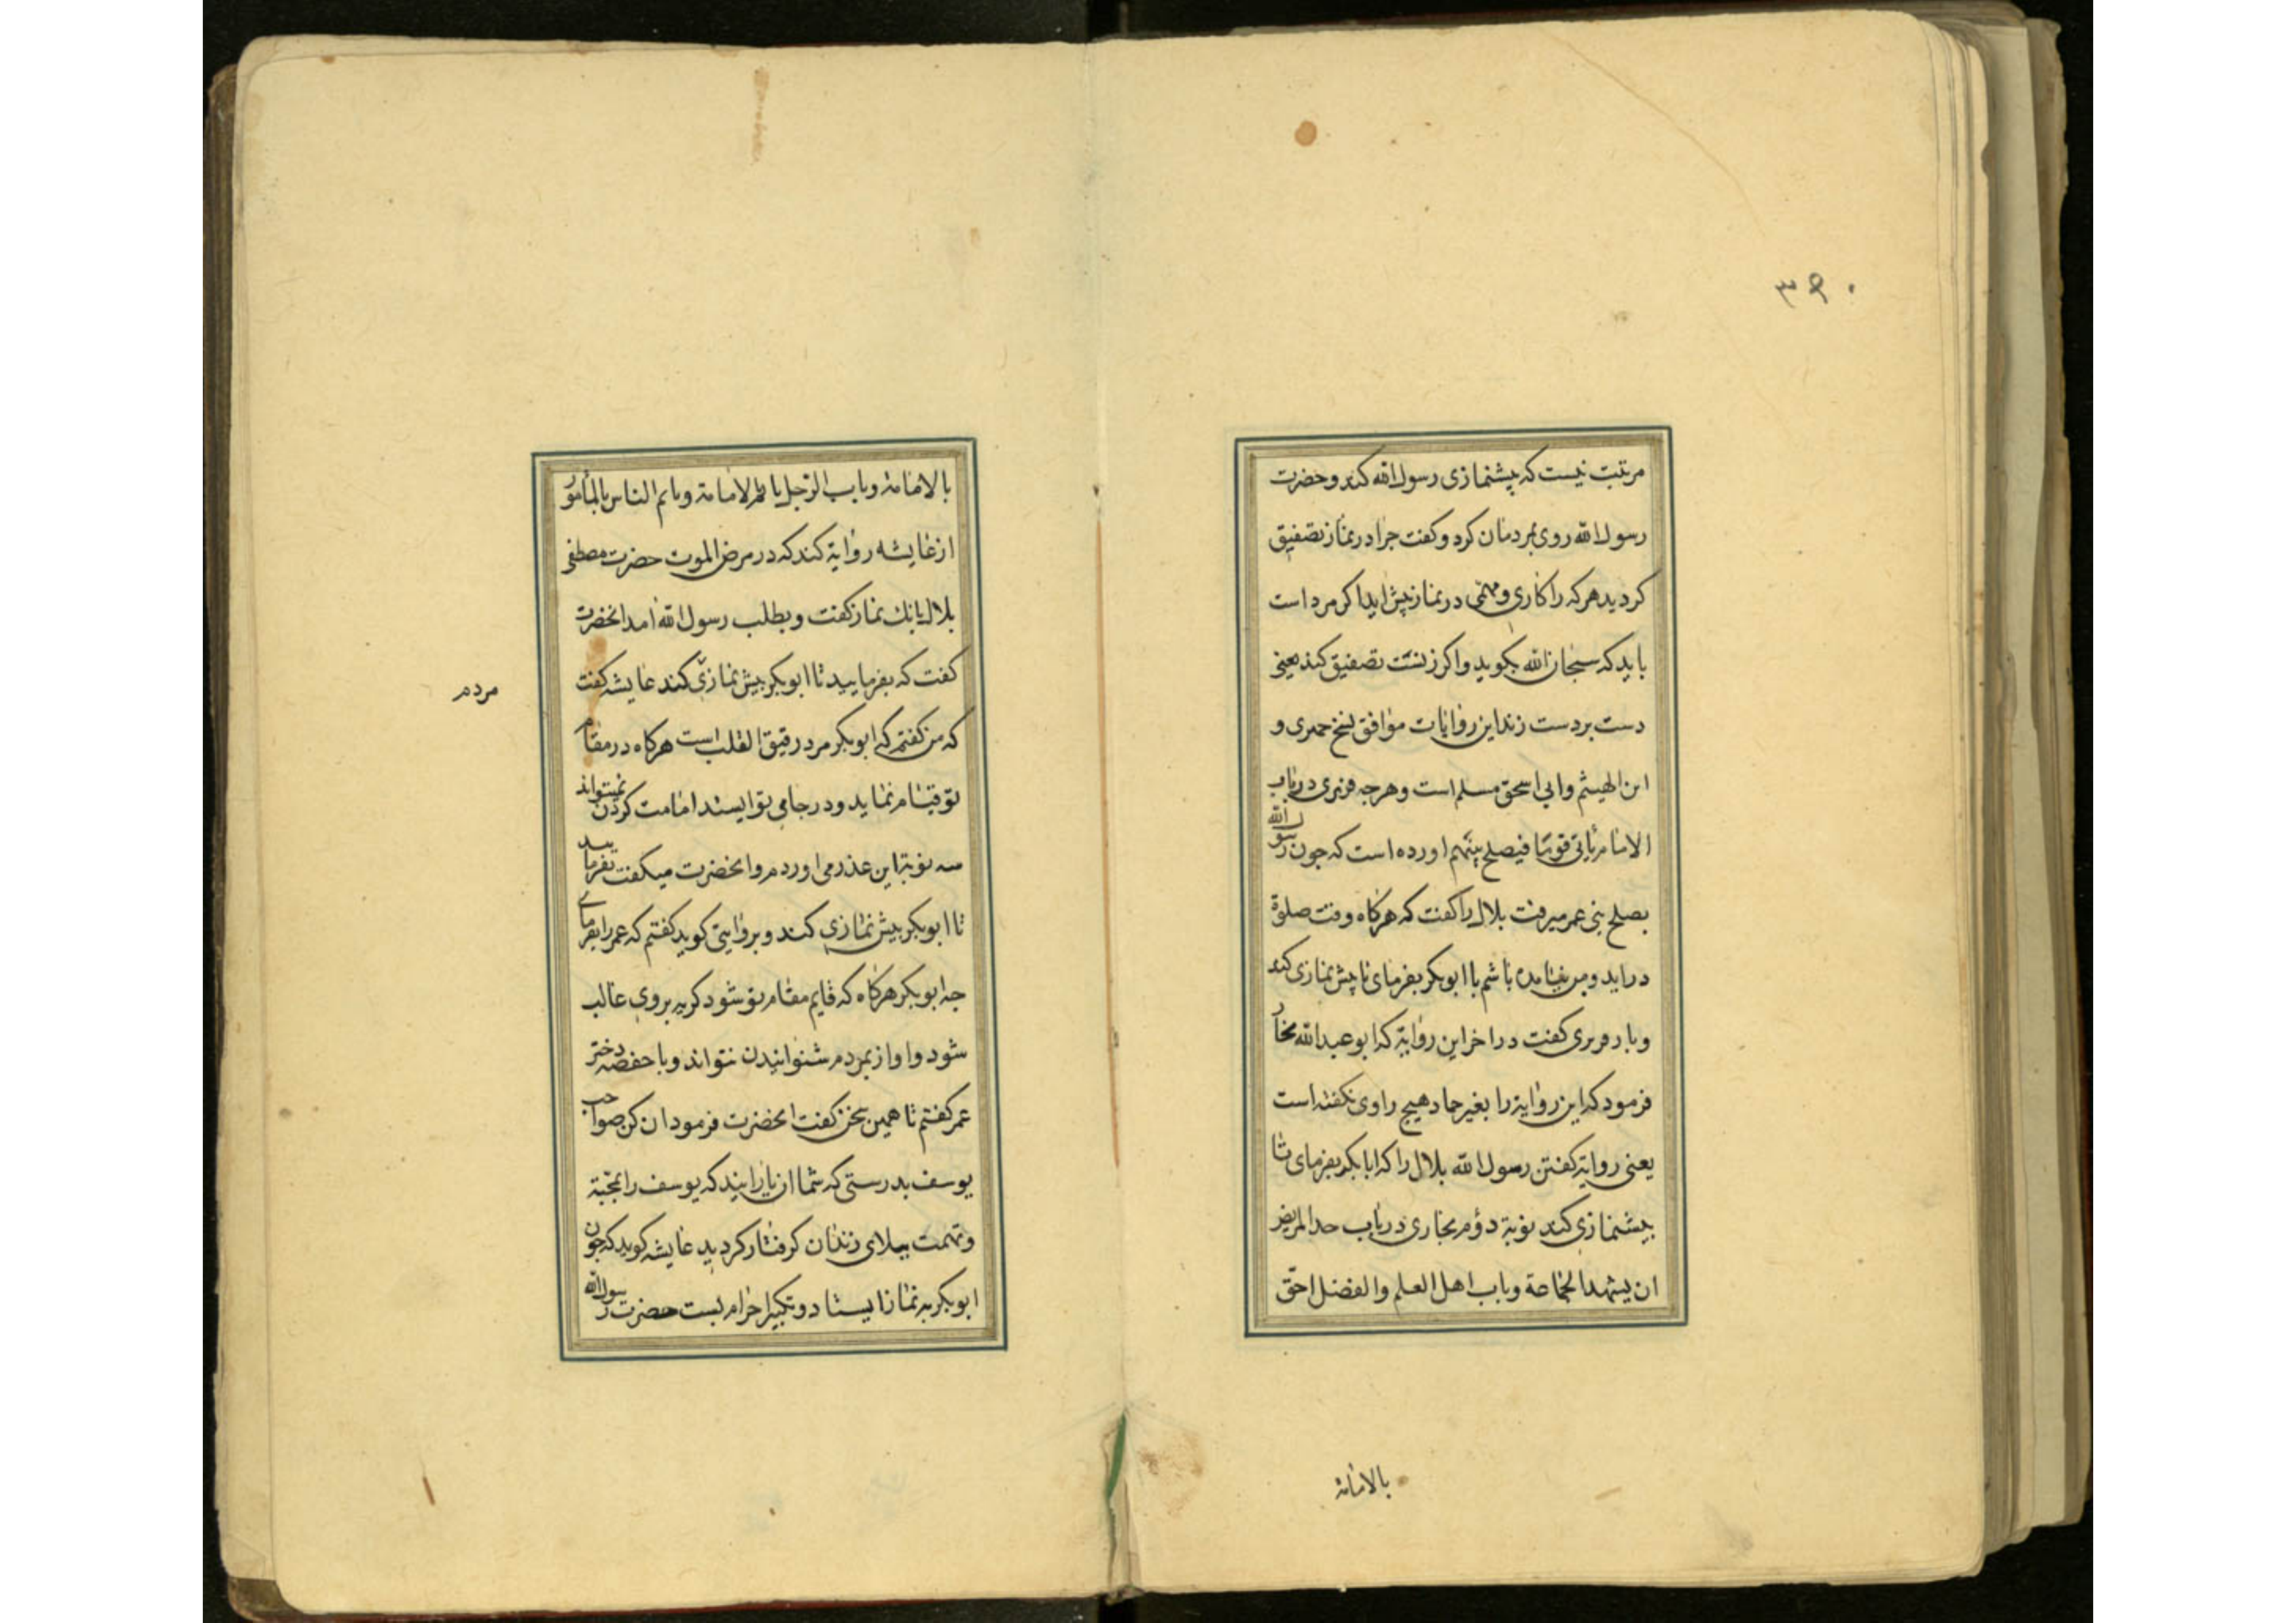 ۳۹۰
مرتبت نیست که پیشنمازی رسول الله کند و حضرت
رسول الله روی بمردمان کرد و کفت جرا در نماز تصفیق
کردید هرکه را کاری و مهمی در نماز پیش اید اکر مرد است
باید که سبحان الله بکوید و اکر زنست تصفیق کند یعنی
دست بر دست زند این روایات موافق نسخ حمری و
ابن الهیثم وابی اسحق مسلم است و هرجه فربری در باب
الامام یأتی قوما فیصلح بینهم اورده است که جون رسول الله
بصلح بنی عمر میرفت بلال را کفت که هرکاه وقت صلوة
دراید و من نیامده باشم با ابوبکر بفرمای تا پیش نمازی کند
وبار فربری کفت در اخر این روایة که ابو عبدالله بخار
فرمود که این روایة را بغیر حماد هیج راوی نکفته است
یعنی روایة کفتن رسول الله بلال را که ابابکر بفرمای تا
بیشنمازی کند نوبة دؤم بخاری در باب حد المریض
ان یشهد الجماعة وباب اهل العلم والفضل احق
بالامامة
بالامامة وباب الرجل یاتم الامامة ویاتم الناس بالمأموم
از عایشه روایة کند که در مرض الموت حضرت مصطفی
بلال بانك نماز کفت و بطلب رسول الله امد انحضرت
کفت که بفرمایید تا ابوبکر بیش نمازی کند عایشه کفت
که من کفتم که ابوبکر مرد رقیق القلب است هرکاه در مقام
تو قیام نماید و در جای تو ایستد امامت کردن نمیتواند
مردم
سه نوبة این عذر می اوردم و انحضرت میکفت بفرمایید
تا ابوبکر بیش نمازی کند و بروایتی کوید کفتم که عمر را بفرمای
جه ابوبکر هرکاه که قایم مقام تو شود کریه بر وی غالب
شود و اواز بمردم شنوانیدن نتواند و با حفصه دختر
عمر کفتم تا همین سخن کفت انحضرت فرمود ان کن صواحب
یوسف بدرستی که شما از انانید که یوسف را بمحبة
وتهمت ببلای زندان کرفتار کردید عایشه کوید که جون
ابوبکر به نماز ایستاد و تکبیر احرام بست حضرت رسول الله